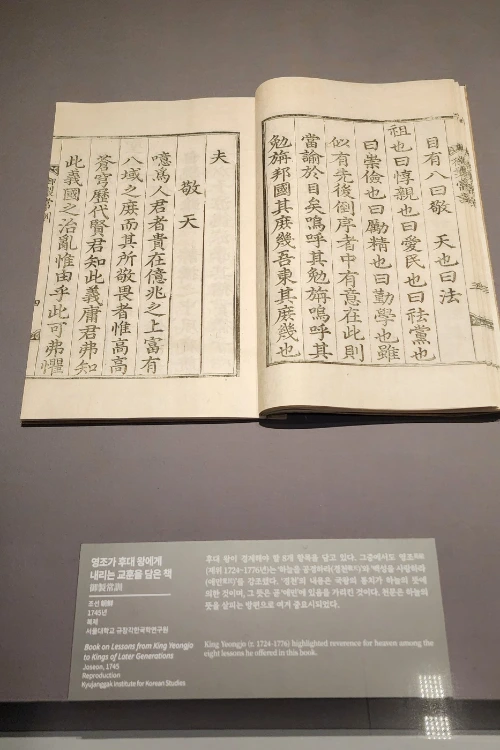 目有八曰敬　天也曰法
祖也曰惇親也曰愛民也曰祛黨也
曰崇儉也曰勵精也曰勤學也雖
似有先後倒序者中有意在此則
當諭於目矣嗚呼其勉旃嗚呼其
勉旃邦國其庶幾吾東其庶幾也
夫
敬天
噫爲人君者貴在億兆之上富有
八域之庶而其所敬畏者惟高高
蒼穹歷代賢君知此義庸君弗知
此義國之治亂惟由乎此可弗懼
영조가 후대 왕에게
내리는 교훈을 담은 책
御製常訓
조선 朝鮮
1745년
복제
서울대학교 규장각한국학연구원
Book on Lessons from King Yeongjo
to Kings of Later Generations
Joseon, 1745
Reproduction
Kyujanggak Institute for Korean Studies
후대 왕이 경계해야 할 8개 항목을 담고 있다. 그중에서도 영조英祖
(재위 1724-1776년)는 '하늘을 공경하라(경천敬天)'와 '백성을 사랑하라
(애민愛民)'를 강조했다. '경천'의 내용은 국왕의 통치가 하늘의 뜻에
의한 것이며, 그 뜻은 곧 '애민'에 있음을 가리킨 것이다. 천문은 하늘의
뜻을 살피는 방편으로 여겨 중요시되었다.
King Yeongjo (r. 1724-1776) highlighted reverence for heaven among the
eight lessons he offered in this book.